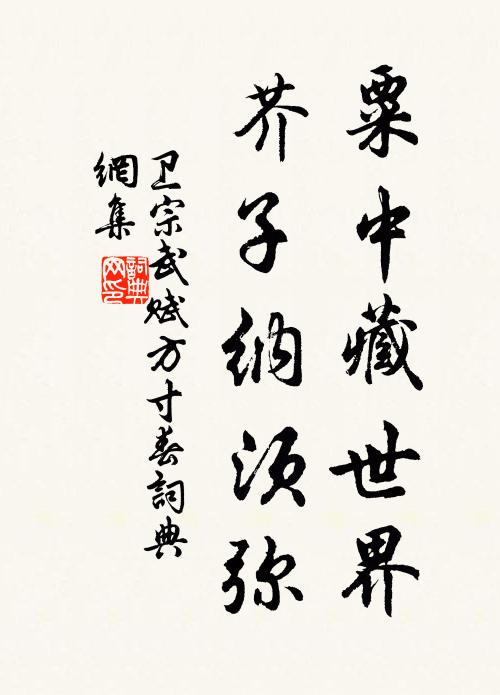 粟中藏世界
芥子纳须弥
卫宗武赋方寸春詞典
網集
詞典網印